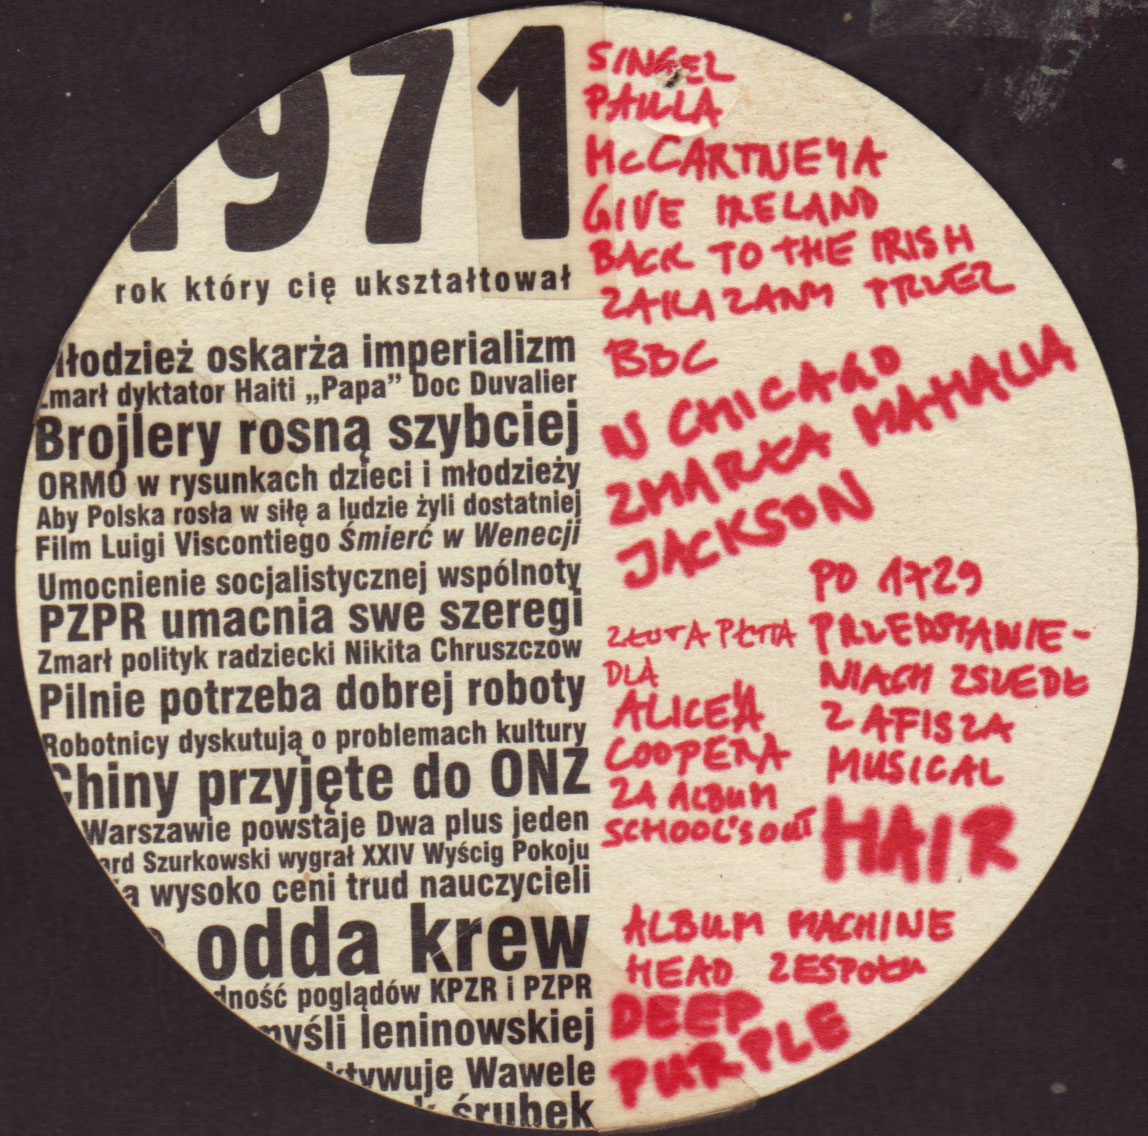 1971
rok który cię ukształtował
młodzież oskarża imperializm
zmarł dyktator Haiti „Papa” Doc Duvalier
Brojlery rosną szybciej
ORMO w rysunkach dzieci i młodzieży
Aby Polska rosła w siłę a ludzie żyli dostatniej
Film Luigi Viscontiego Śmierć w Wenecji
Umocnienie socjalistycznej wspólnoty
PZPR umacnia swe szeregi
Zmarł polityk radziecki Nikita Chruszczow
Pilnie potrzeba dobrej roboty
Robotnicy dyskutują o problemach kultury
Chiny przyjęte do ONZ
Warszawie powstaje Dwa plus jeden
ard Szurkowski wygrał XXIV Wyścig Pokoju
wysoko ceni trud nauczycieli
odda krew
dność poglądów KPZR i PZPR
myśli leninowskiej
ktywuje Wawele
śrubek
SINGEL
PAULLA
McCARTNEYA
GIVE IRELAND
BACK TO THE IRISH
ZAKAZANY PRZEZ
BBC
W CHICAGO
ZMARŁA MAHALIA
JACKSON
ZŁOTA PŁYTA
DLA
ALICE'A
COOPERA
ZA ALBUM
SCHOOL'S OUT
PO 1729
PRZEDSTAWIE-
NIACH ZSZEDŁ
Z AFISZA
MUSICAL
HAIR
ALBUM MACHINE
HEAD ZESPOŁU
DEEP
PURPLE